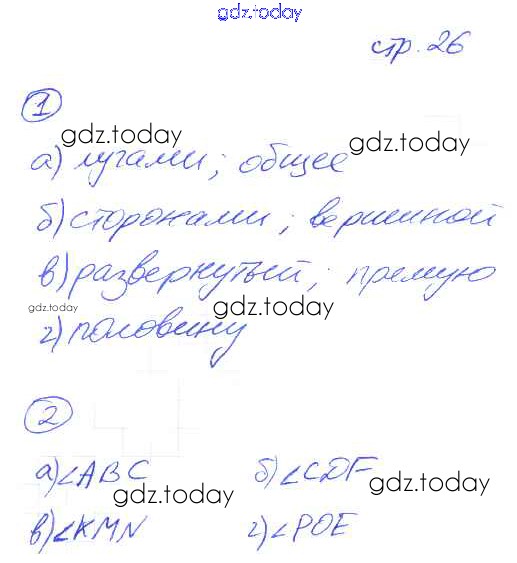 gdz.today
стр. 26
1
gdz.today gdz.today
а) лучами; общее
б) сторонами; вершиной
в) развернутый; прямую
gdz.today gdz.today
г) половину
2
а) ∠ABC б) ∠CDF
gdz.today gdz.today
в) ∠KMN г) ∠POE